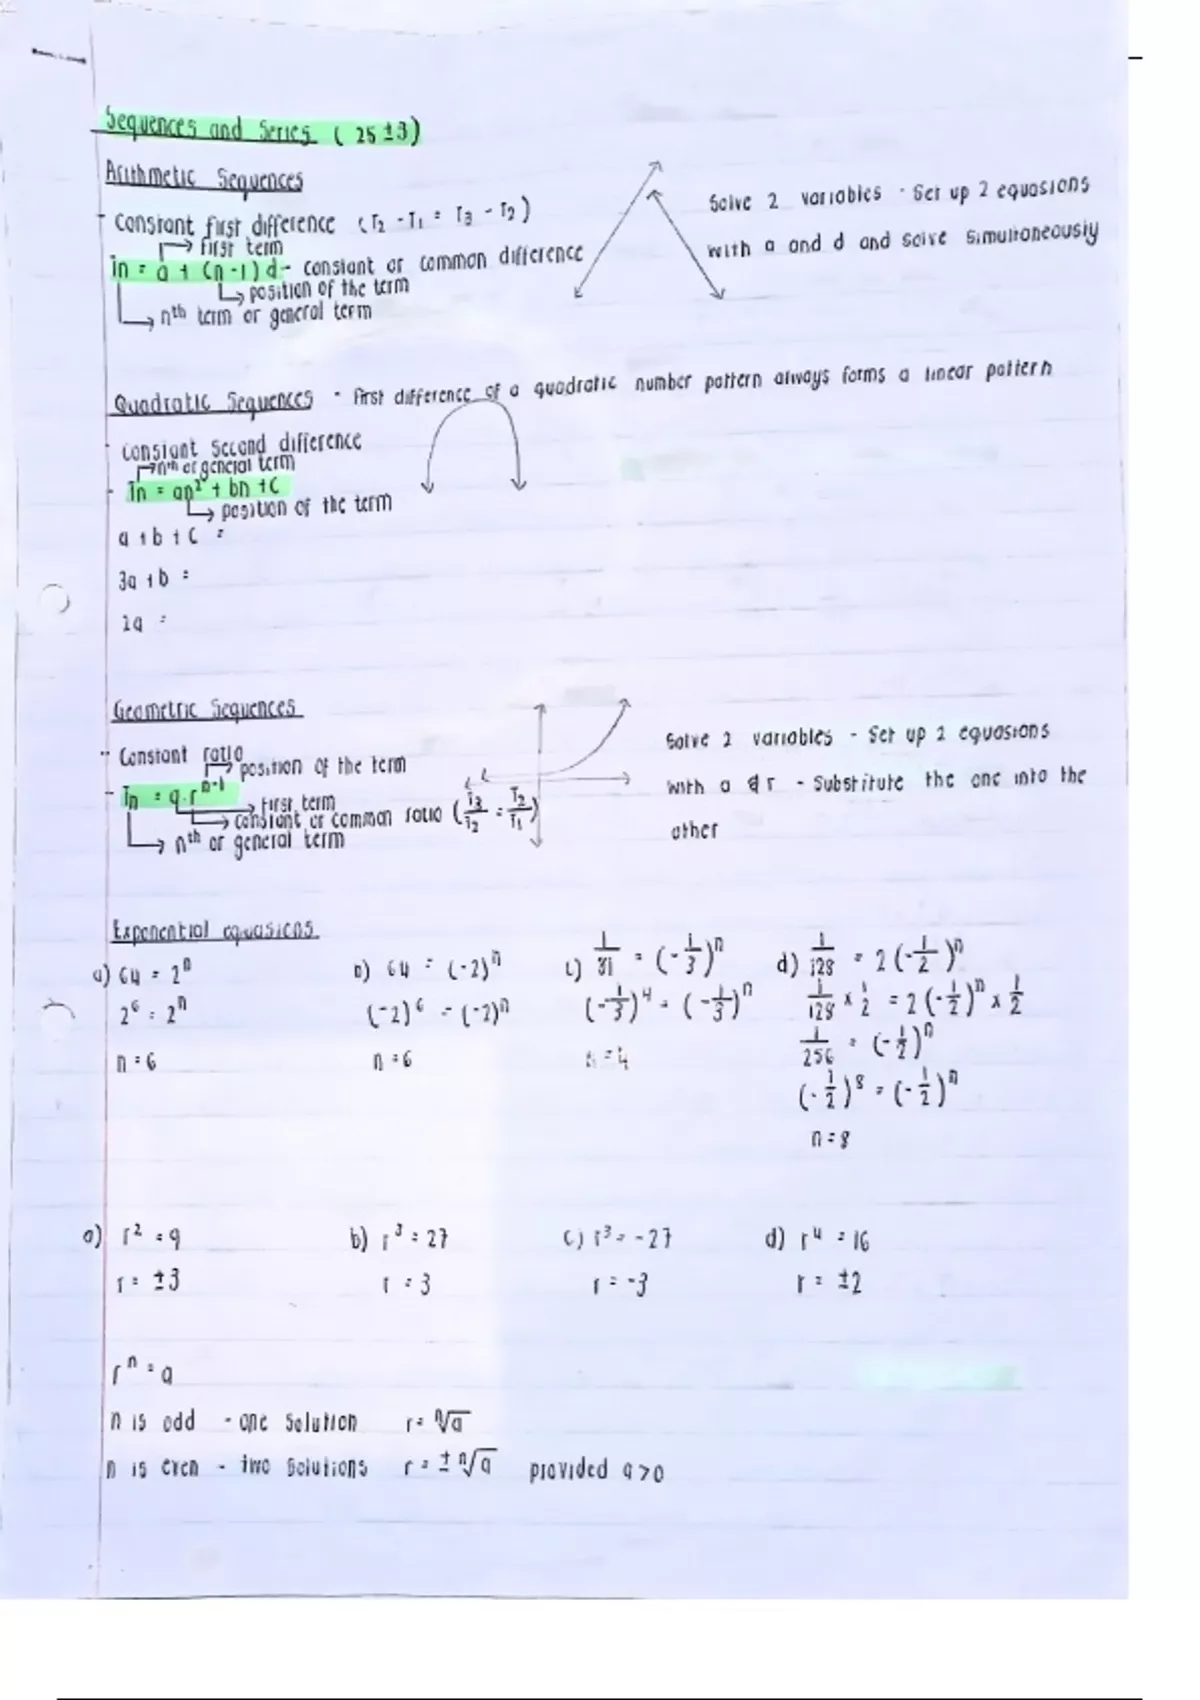 Sequences and Series ( 25 ± 3)
Arithmetic Sequences
- Constant first difference (T₂ - T₁ = T₃ - T₂)
first term
Tn = a + (n-1) d - constant or common difference
position of the term
nᵗʰ term or general term
Solve 2 variables - Set up 2 equasions
with a and d and solve simultaneously
Quadratic Sequences - First difference of a quadratic number pattern always forms a linear pattern
- Constant second difference
nᵗʰ or general term
- Tn = an² + bn + c
position of the term
a + b + c =
3a + b =
2a =
Geometric Sequences
- Constant ratio
position of the term
- Tn = a.rⁿ⁻¹
first term
constant or common ratio (T₃/T₂ = T₂/T₁)
nᵗʰ or general term
Solve 2 variables - Set up 2 equasions
with a & r - Substitute the one into the
other
Exponential equasions
a) 64 = 2ⁿ
2⁶ = 2ⁿ
n = 6
b) 64 = (-2)ⁿ
(-2)⁶ = (-2)ⁿ
n = 6
c) 1/81 = (-1/3)ⁿ
(-1/3)⁴ = (-1/3)ⁿ
n = 4
d) 1/128 = 2(-1/2)ⁿ
1/128 × 1/2 = 2(-1/2)ⁿ × 1/2
1/256 = (-1/2)ⁿ
(-1/2)⁸ = (-1/2)ⁿ
n = 8
a) r² = 9
r = ±3
b) r³ = 27
r = 3
c) r³ = -27
r = -3
d) r⁴ = 16
r = ±2
rⁿ = a
n is odd - one solution r = ⁿ√a
n is even - two solutions r = ± ⁿ√a provided a > 0